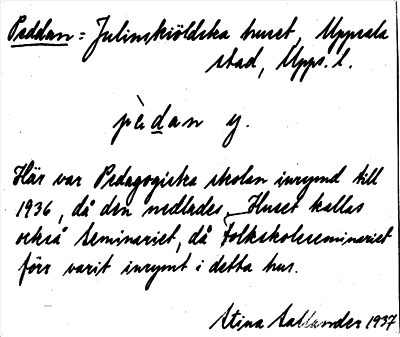 Peddan = Julinskiöldska huset, Uppsala
stad, Upps. l.
pèdan y.
Här var Pedagogiska skolan inrymd till
1936, då den nedlades. Huset kallas
också Seminariet, då Folkskoleseminariet
förr varit inrymt i detta hus.
Stina Sallander 1937